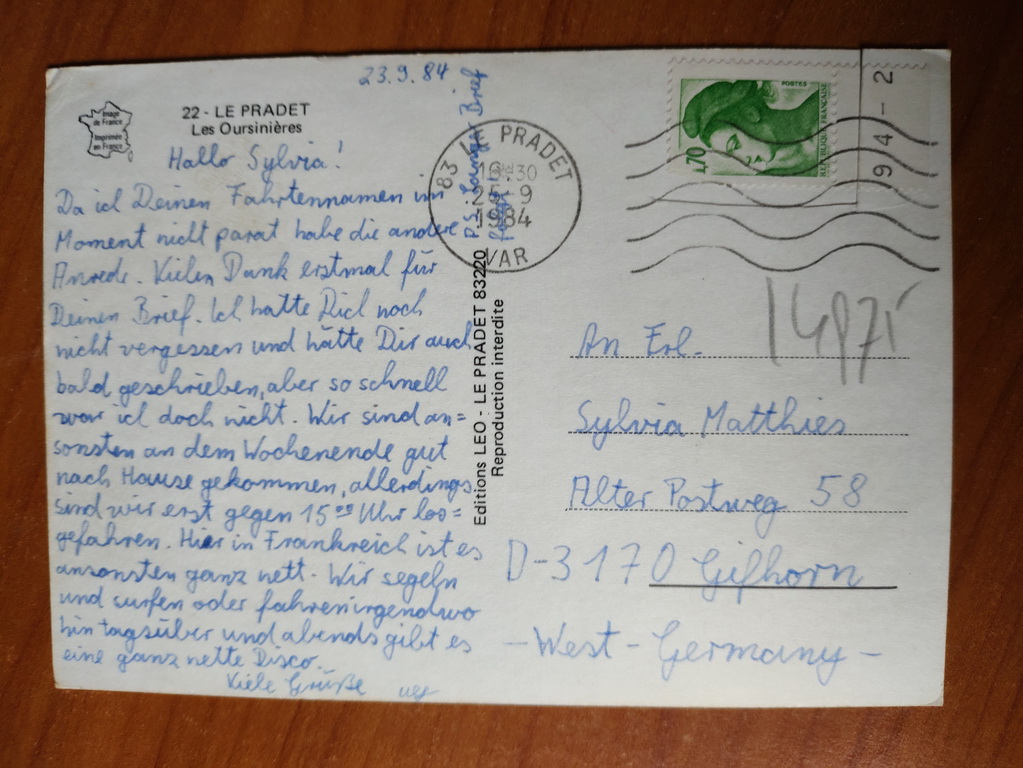 23.9.84
Image
de France
Imprimée
en France
22 - LE PRADET
Les Oursinières
Hallo Sylvia!
Da ich Deinen Fahrtennamen im
Moment nicht parat habe die andere
Anrede. Vielen Dank erstmal für
Deinen Brief. Ich hatte Dich noch
nicht vergessen und hätte Dir auch
bald geschrieben, aber so schnell
war ich doch nicht. Wir sind an=
sonsten an dem Wochenende gut
nach Hause gekommen, allerdings
sind wir erst gegen 15 00 Uhr los=
gefahren. Hier in Frankreich ist es
ansonsten ganz nett. Wir segeln
und surfen oder fahren irgendwo
hin tagsüber und abends gibt es
eine ganz nette Disco.
Viele Grüße
P.S. Langer Brief
folgt
Editions LEO - LE PRADET 83220
Reproduction interdite
83 LE PRADET
16H30
25-9
1984
VAR
POSTES
1,70
REPUBLIQUE FRANÇAISE
94-2
An Frl.
Sylvia Matthies
Alter Postweg 58
D-3170 Gifhorn
-West-Germany-